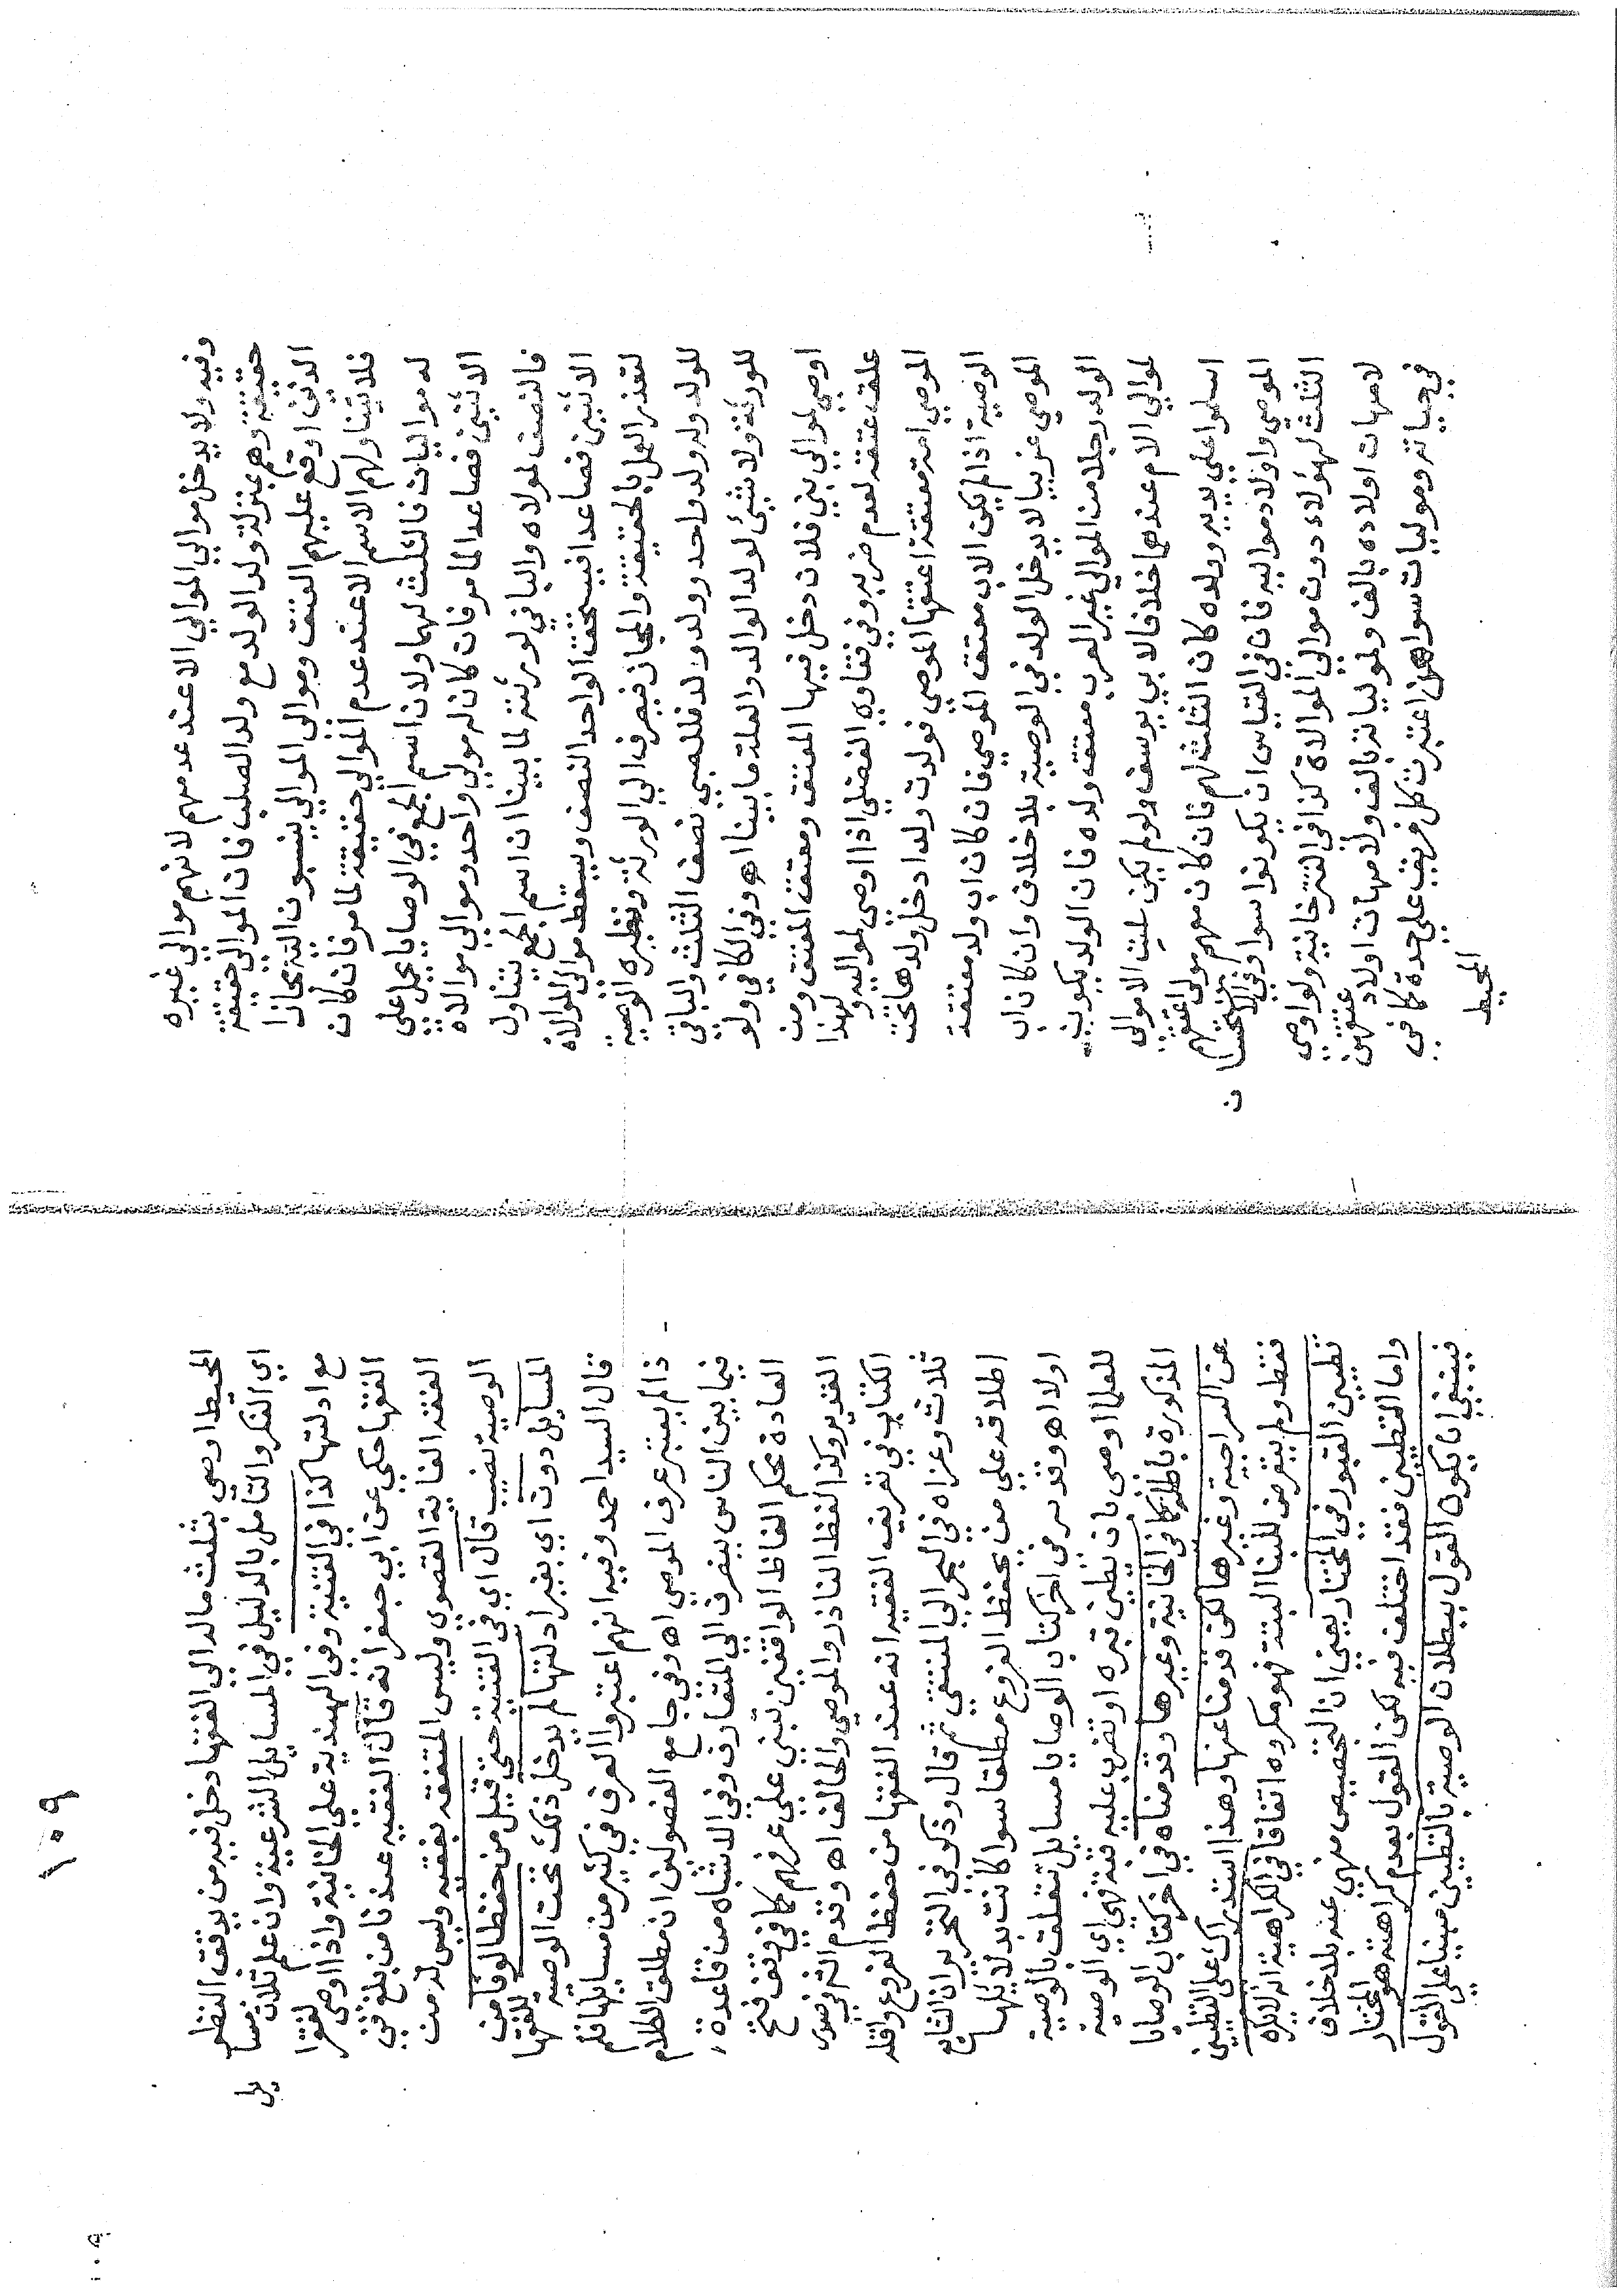 وفيه ولا يدخل موالي الموالي الا عند عدمهم لانهم موالي غيره
حقيقة وهم بمنزلة ولد الولد مع ولد الصلب فان الموالي حقيقة
الذين اوقع عليهم العتق وموالي الموالي ينسبون اليه مجازا
فلا يتناولهم الاسم الا عند عدم الموالي حقيقة لما مر فان كان
له مواليان فالثلث لهما ولان اسم الجمع في الوصايا يحمل على
الاثنين فصاعدا لما مر فان كان له مولي واحد وموالي موالاة
فالنصف لمولاه والباقي لورثته لما بينا ان اسم الجمع يتناول
الاثنين فصاعدا فيستحق الواحد النصف ويسقط موالي الموالاة
لتعذر العمل بالحقيقة والمجاز فيصرف الي الورثة ونظيره الوصية
للولد وله ولد واحد وولد ولد فللصلبي نصف الثلث والباقي
للورثة ولا شئ لولد الولد والعلة ما بينا اه وفي الكافي ولو
اوصي لموالي بني فلان دخل فيها المعتق ومعتق المعتق ومن
علق عتقه لعدم ضربه وفي فتاوي الفضلي اذا اوصى لمواليه ولهذا
الموصي امة معتقة اعتقها الموصي فولدت ولدا دخل ولدها تحت
الوصية اذا لم يكن الاب معتق الموصي فان كان اب ولد معتقة
الموصي عربيا لا يدخل الولد في الوصية بلا خلاف وان كان اب
الولد رجلا من الموالي غير العرب معتقه ولده فان الولد يكون
لموالي الام عندهما خلافا لابي يوسف ولو لم يكن لميت الا موالي
اسلموا علي يديه وولده كان الثلث لهم فان كان معهم مولى اعتقهم
الموصي واولاد مواليه فان في القياس ان يكونوا سوا وفي الاستحسان
الثلث لهؤلاء دون موالي الموالاة كذا في التترخانية ولو اوصي
لامهات اولاده بالف ولمولياته بالف ولامهات اولاد عتقهن
في حياته وموليات سواهن اعتبرت كل فريق علي حدة كما في
المحيط
١٠٩
المحيط اوصي بثلث ماله الي الفقها دخل فيه من يدقق النظر
اي الفكر والتامل بالدليل في المسايل الشرعية وان علم ثلاث مسايل
مع ادلتها كذا في القنية وفي الهندية علي الخانية واذا اوصى لفقرا
الفقها حكي عن ابي جعفر انه قال الفقيه عندنا من بلغ في
الفقه الغاية القصوي وليس المتفقه بفقيه وليس له من
الوصية نصيب قال اي في القنية حتى قيل من حفظ الوفا من
المسايل دون اي بغير ادلتها لم يدخل ذلك تحت الوصية للفقها
قال السيد احمد وفيه انهم اعتبروا العرف في كثير من مسايلها فلم
ذا لم يعتبر عرف الموصي اه وفي جامع الفصولين ان مطلق الكلام
فيما بين الناس يصرف الي المتعارف وفي الاشباه من قاعدة
العادة محكم الفاظ الواقفين تبني علي عرفهم كما في وقف فتح
القدير وكذا لفظ الناذر والموصي والحالف اه وقدم الشرفي في صوى
الكتاب في تعريف الفقيه انه عند الفقها من حفظ الفروع واقله
ثلاث وعزاه في البحر الي المنتقي ثم قال وذكر في التحرير ان الشايع
اطلاقه علي من يحفظ الفروع مطلقا سوا كانت بدلايلها
اولا اه وقد مر في اخر كتاب الوصايا مسايل تتعلق بالوصية
للعلما اوصى بان يطين قبره او تضرب عليه قبة فهي اي الوصية
المذكورة باطلة كما في الخانية وغيرها وقدمناه في اخر كتاب الوصايا
عن السراجية وغيرها لكن قدمنا عنها وهذا استدراك على التطيين
فقط ولم يتعرض للبنا البتة فهو مكروه اتفاقا في الكراهية انه لا يكره
تطيين القبور في المختار يعني ان التجصيص منهي عنه بلا خلاف
واما التطيين فقد اختلف فيه لكن القول بعدم كراهته هو المختار
فينبغي ان يكون القول ببطلان الوصية بالتطيين مبنيا علي القول